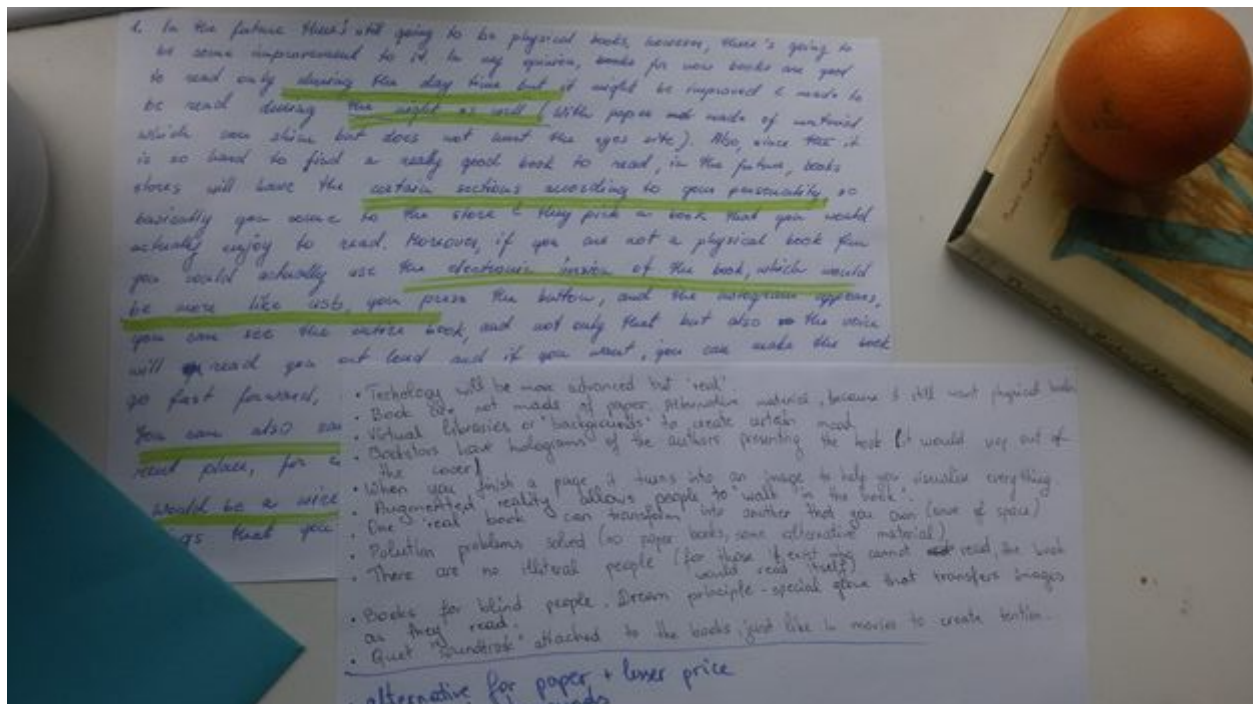 1. In the future there's still going to be physical books, however, there's going to
be some improvement to it. In my opinion, books for now books are good
to read only during the day time but it might be improved & made to
be read during the night as well (with paper made of material
which can shine but does not hurt the eyes site). Also, since it
is so hard to find a really good book to read, in the future, books
stores will have the certain sections according to your personality, so
basically you come to the store & they pick a book that you would
actually enjoy to read. Moreover, if you are not a physical book fan
you could actually use the electronic version of the book, which would
be more like, you press the button, and the hologram appears,
you can see the entire book, and not only that but also the voice
will read you out loud and if you want, you can make the book
go fast forward,
You can also
real place, for
would be a nice
that you
• Techology will be more advanced but 'real'.
• Book are not mads of paper. Alternative material, because I still want physical books
• Virtual libraries or "backgrounds" to create certain mood
• Bookstors have holograms of the authors presenting the book (it would up out of
the cover)
• When you finish a page it turns into an image to help you visualise everything
• Augmented reality allows people to "walk" in the book".
• One "real book" can transform into another that you own (save of space)
• Polution problems solved (no paper books, some alternative material)
• There are no illiteral people (for those if exist who cannot read, the book
would read itself)
• Books for blind people. Dream principle - special glove that transfers images
as they read.
• Quiet "soundtrak" attached to the books, just like in movies to create tention...
alternative for paper + lesser price